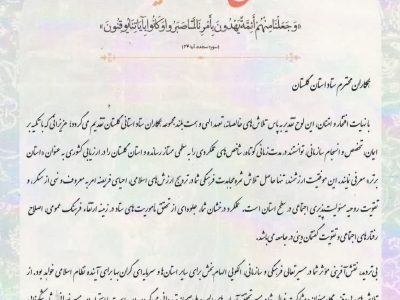 «وَجَعَلْنَا مِنْهُمْ أَئِمَّةً يَهْدُونَ بِأَمْرِنَا لَمَّا صَبَرُوا وَكَانُوا بِآيَاتِنَا يُوقِنُونَ»
(سوره سجده، آیه ۲۴)
همکاران محترم ستاد استان گلستان
با نهایت افتخار و امتنان، این لوح تقدیر به پاس تلاش‌های خالصانه، تعهد الهی و همت بلند مجموعه همکاران ستاد استانی گلستان تقدیم می‌گردد؛ عزیزانی که با تکیه بر
ایمان، تخصص و انسجام سازمانی، توانستند در مدت زمانی کوتاه، شاخص‌های عملکردی را به سطحی ممتاز رسانده و استان گلستان را در ارزیابی کشوری به عنوان استان
برتر معرفی نمایند. این موفقیت ارزشمند، تنها حاصل تلاش شما و مجاهدت فرهنگی شما در ترویج ارزش‌های اسلامی، احیای فریضه امر به معروف و نهی از منکر، و
تقویت روحیه مسئولیت‌پذیری اجتماعی در سطح استان است. عملکرد درخشان شما، جلوه‌ای از تحقق مأموریت‌های ستاد در زمینه ارتقاء فرهنگ عمومی، اصلاح
رفتارهای اجتماعی و تقویت گفتمان دینی در جامعه می‌باشد.
بی‌تردید، نقش آفرینی موثر شما در مسیر تعالی فرهنگی و سازمانی، الگویی الهام‌بخش برای سایر استان‌ها و سرمایه‌ای گران‌بها برای آینده نظام اسلامی خواهد بود. از